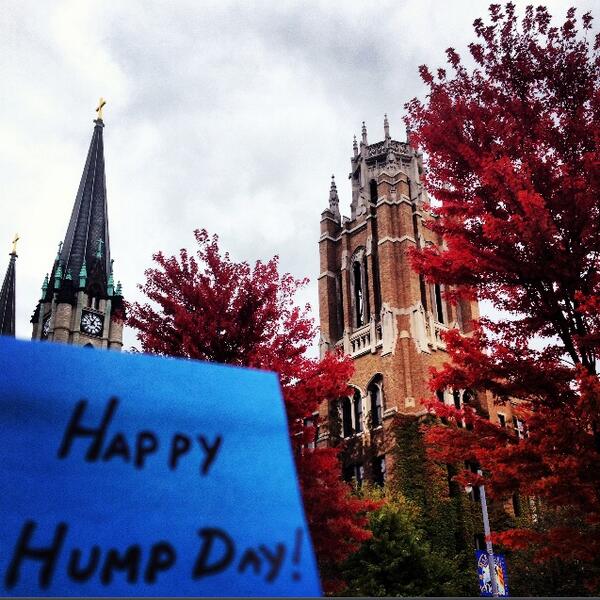 HAPPY
HUMP DAY!